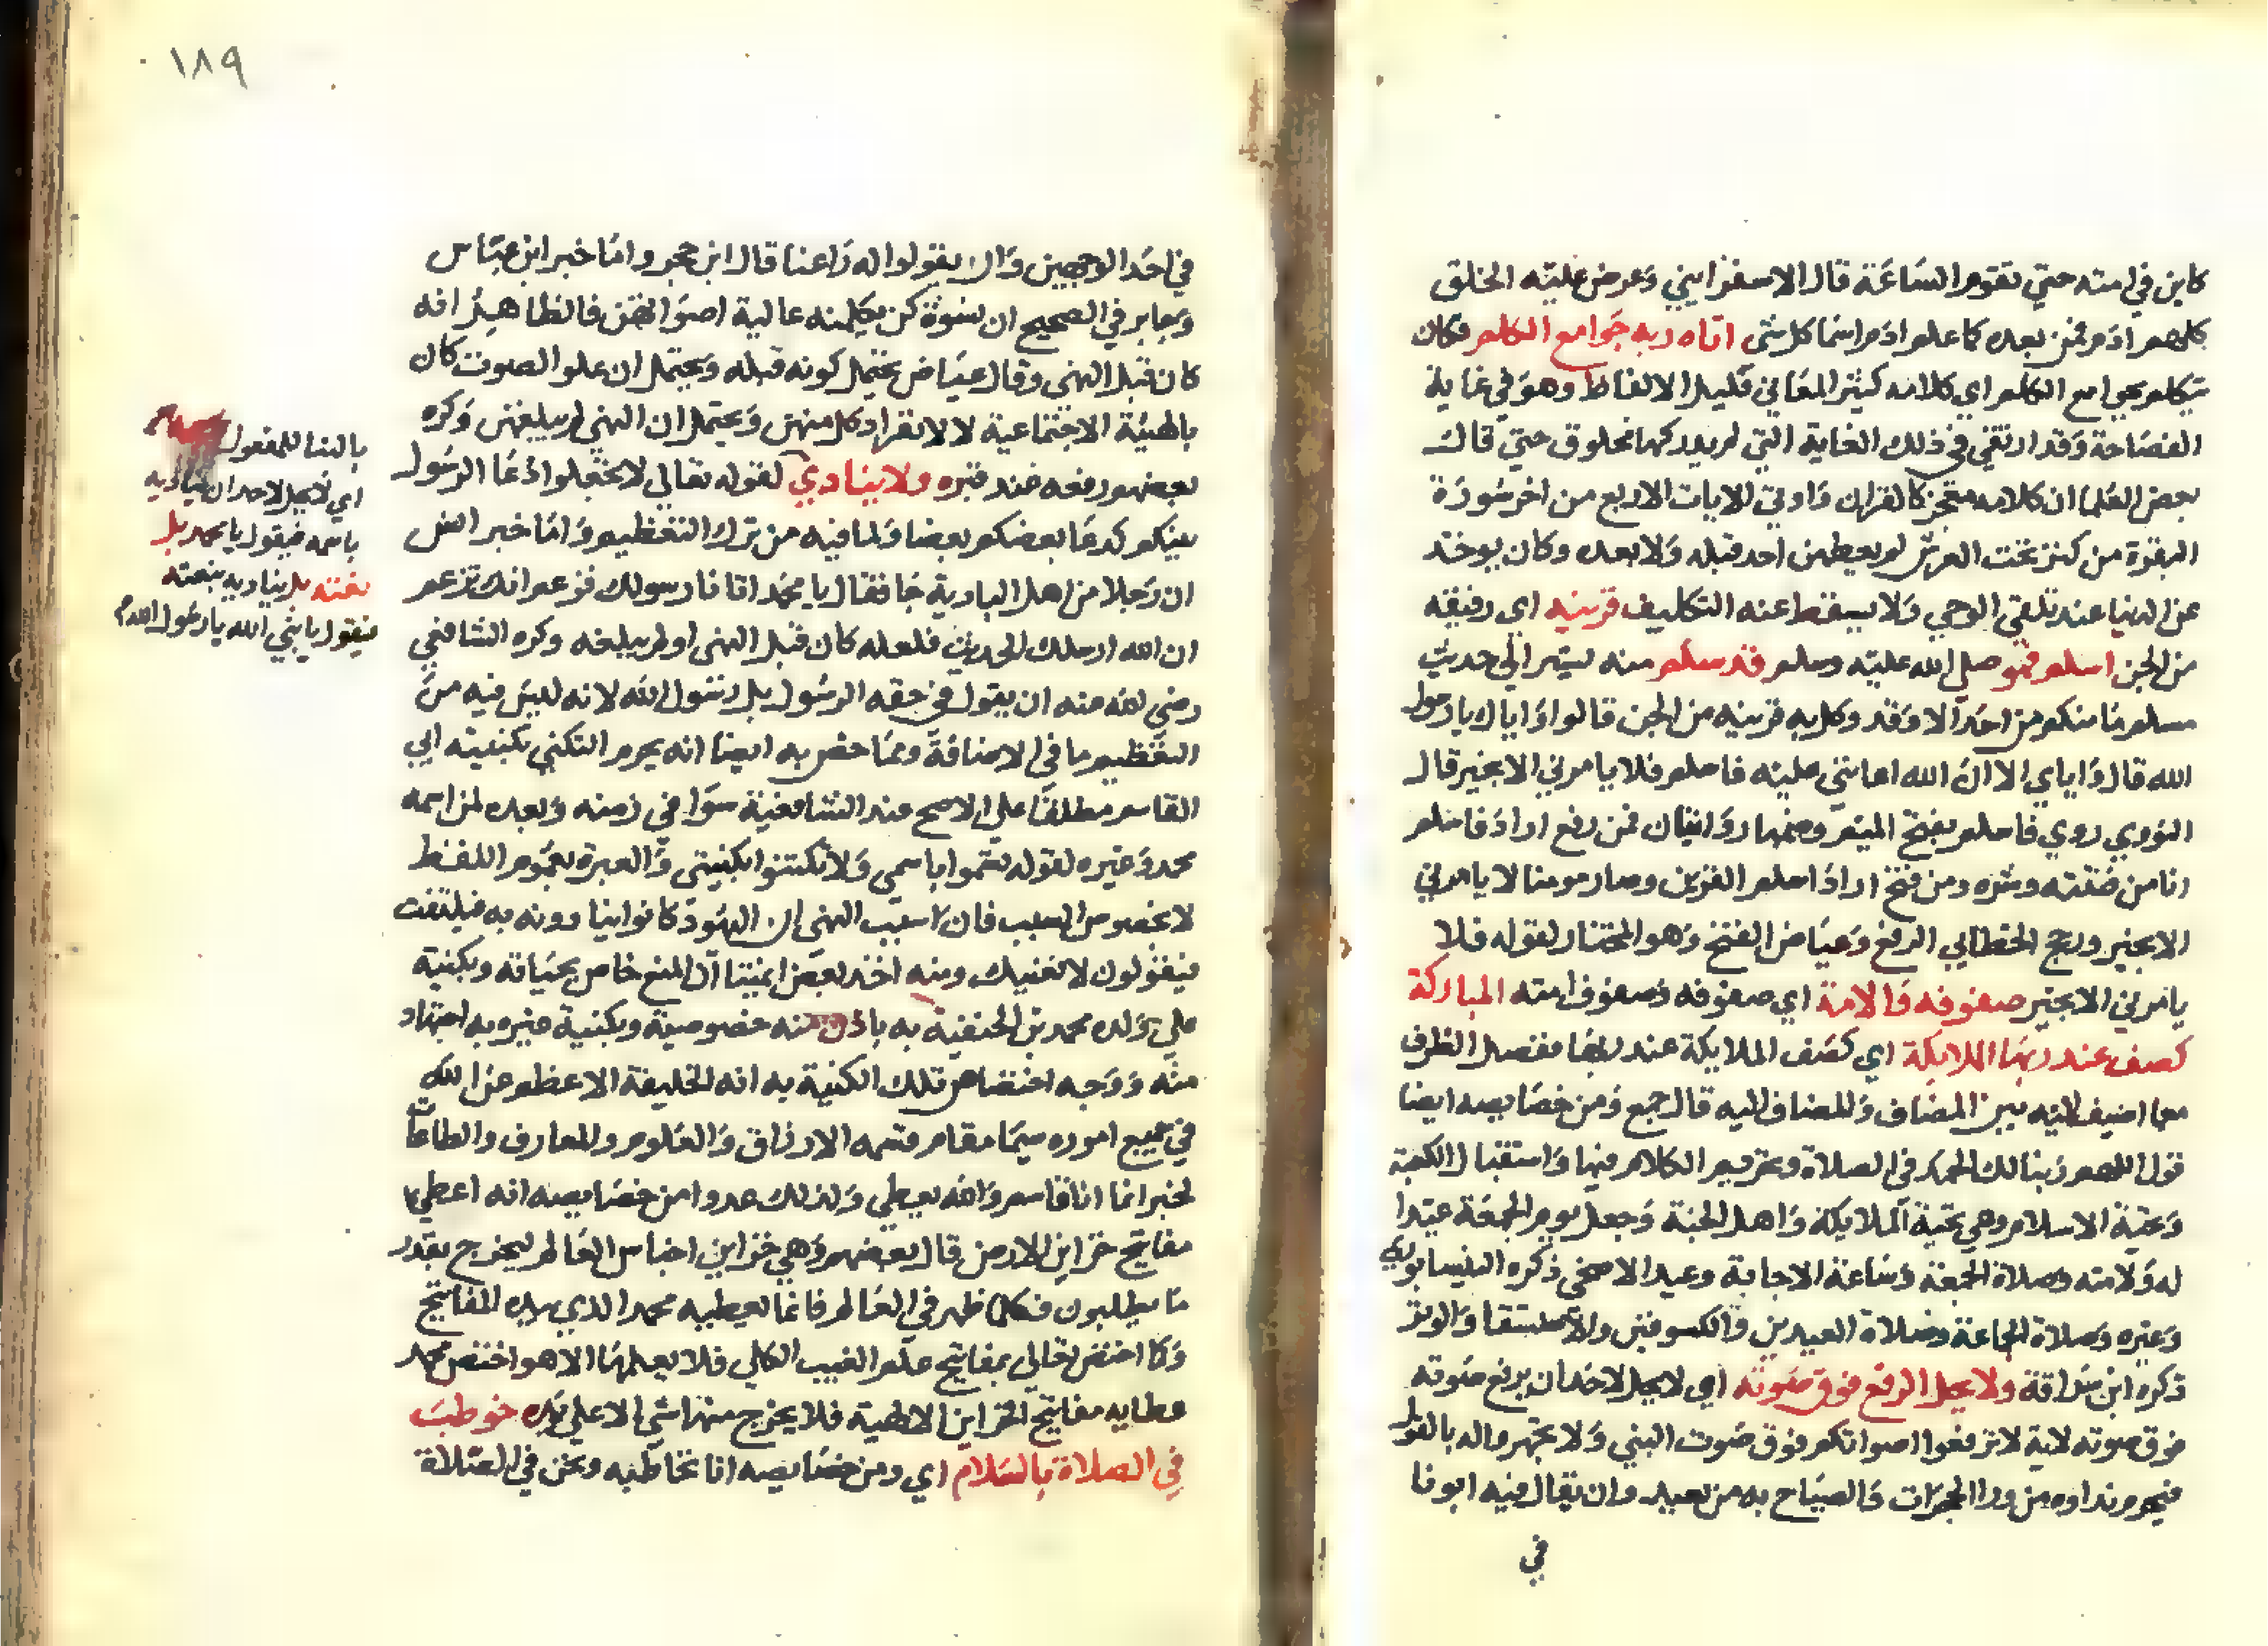 كاين في امته حتي تقوم الساعة قال الاسفرايني وعرض عليه الخلق
كلهم ادم فمن بعده كما علم ادم اسما كل شي اتاه ربه جوامع الكلم فكان
يتكلم بجوامع الكلم اي كلامه كثير المعاني قليل الالفاظ وهو في غاية
الفصاحة وقد ارتقي في ذلك الغاية التي لم يدركها مخلوق حتي قال
بعض العلما ان كلامه معجز كالقران واوتي الايات الاربع من اخر سورة
البقرة من كنز تحت العرش لم يعطهن احد قبله ولا بعده وكان يوخذ
عن الدنيا عند تلقي الوحي ولا يسقط عنه التكليف قرينه اي رفيقه
من الجن اسلم فهو صلي الله عليه وسلم قد سلم منه ليشير الي حديث
مسلم ما منكم من احد الا وقد وكل به قرينه من الجن قالوا واياك يا رسول
الله قال واياي الا ان الله اعانني عليه فاسلم فلا يامرني الا بخير قال
النووي روي فاسلم بفتح الميم وضمها روايتان فمن رفع اراد فاسلم
انا من فتنته وشره ومن فتح اراد اسلم القرين وصار مومنا لا يامرني
الا بخير ورجح الخطابي الرفع وعياض الفتح وهو المختار لقوله فلا
يامرني الا بخير صفوفه والامة اي صفوفه وصفوف امته المباركة
كصف عند ربها الملايكة اي كصف الملايكة عند ربها ففصل الظرف
مما اضيف اليه بين المضاف والمضاف اليه قال جمع ومن خصايصه ايضا
قول اللهم ربنا لك الحمد في الصلاة وتحريم الكلام فيها واستقبال الكعبة
وتحية الاسلام وهي تحية الملايكة واهل الجنة وجعل يوم الجمعة عيدا
له ولامته وصلاة الجمعة وساعة الاجابة وعيد الاضحي ذكره النيسابوري
وغيره وصلاة الجماعة وصلاة العيدين والكسوفين والاستسقا والوتر
ذكره ابن سراقة ولا يحل الرفع فوق صوته اي لا يحل لاحد ان يرفع صوته
فوق صوته لاية لا ترفعوا اصواتكم فوق صوت النبي ولا تجهروا له بالقول
فيحرم نداوه من ورا الحجرات والصياح به من بعيد وان يقال فيه ابونا
في
١٨٩
في احد الوجهين وان يقولوا له راعنا قال ابن حجر واما خبر ابن عباس
وجابر في الصحيح ان نسوة كن يكلمنه عالية اصواتهن فالظاهر انه
كان قبل النهي وقال عياض يحتمل كونه قبله ويحتمل ان علو الصوت كان
بالهيئة الاجتماعية لا لانفراد كل منهن ويحتمل ان النهي لم يبلغهن وكره
بعضهم رفعه عند قبره ولا ينادي لقوله تعالي لا تجعلوا دعا الرسول
بينكم كدعا بعضكم بعضا ولما فيه من ترك التعظيم واما خبر انس
ان رجلا من اهل البادية جا فقال يا محمد اتانا رسولك فزعم انك تزعم
ان الله ارسلك الحديث فلعله كان قبل النهي او لم يبلغه وكره الشافعي
رضي الله عنه ان يقول في حقه الرسول بل رسول الله لانه ليس فيه من
التعظيم ما في الاضافة ومما خص به ايضا انه يحرم التكني بكنيته ابي
القاسم مطلقا علي الاصح عند الشافعية سوا في زمنه وبعده لمن اسمه
محمد وغيره لقوله تسموا باسمي ولا تكتنوا بكنيتي والعبرة بعموم اللفظ
لا بخصوص السبب فان سبب النهي ان اليهود كانوا ينادونه به فيلتفت
فيقولون لا نعنيك ومنه اخذ بعض ايمتنا ان المنع خاص بحياته وبكنية
علي ولده محمد بن الحنفية به باذن منه خصوصية وبكنية غيره به اجتهاد
منه ووجه اختصاص تلك الكنية به انه الخليفة الاعظم عن الله
في جميع اموره سيما مقام قسمه الارزاق والعلوم والمعارف والطاعات
لخبر انما انا قاسم والله يعطي ولذلك عدوا من خصايصه انه اعطي
مفاتيح خزاين الارض قال بعضهم وهي خزاين اجناس العالم ليخرج بقدر
ما يطلبون فكلما ظهر في العالم فانما يعطيه محمد الذي بيده المفاتيح
وكما اختص تعالي بمفاتيح علم الغيب الكلي فلا يعلمها الا هو اختص محمد
عطايه مفاتيح الخزاين الالهية فلا يخرج منها شي الا علي يده خوطب
في الصلاة بالسلام اي ومن خصايصه انا نخاطبه ونحن في الصلاة
بالبنا للمفعول
اي لا يحل لاحد ان يناديه
باسمه فيقول يا محمد بل
بنعته بل يناديه بنعته
فيقول يا نبي الله يا رسول الله